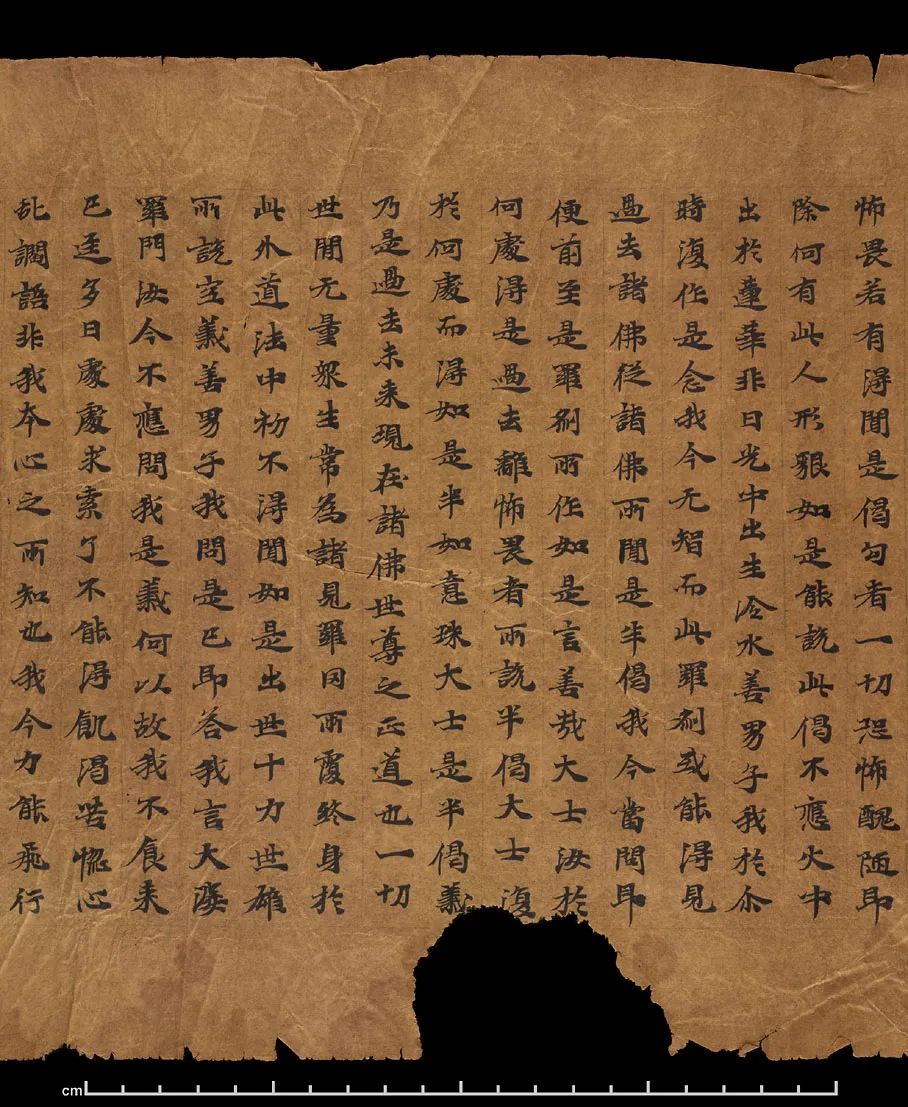 怖畏若有得聞是偈句者一切恐怖醜陋即
除何有此人形貌如是能說此偈不應火中
出於蓮華非日光中出生冷水善男子我於尒
時復作是念我今无智而此羅剎或能得見
過去諸佛從諸佛所聞是半偈我今當問即
便前至是羅剎所作如是言善哉大士汝於
何處得是過去離怖畏者所說半偈大士復
於何處而得如是半如意珠大士是半偈義
乃是過去未來現在諸佛世尊之正道也一切
世間无量眾生常為諸見羅罔所覆終身於
此外道法中初不得聞如是出世十力世雄
所說空義善男子我問是已即答我言大婆
羅門汝今不應問我是義何以故我不食來
已逕多日處處求索了不能得飢渴苦惱心
乱調語非我本心之所知也我今力能飛行
cm